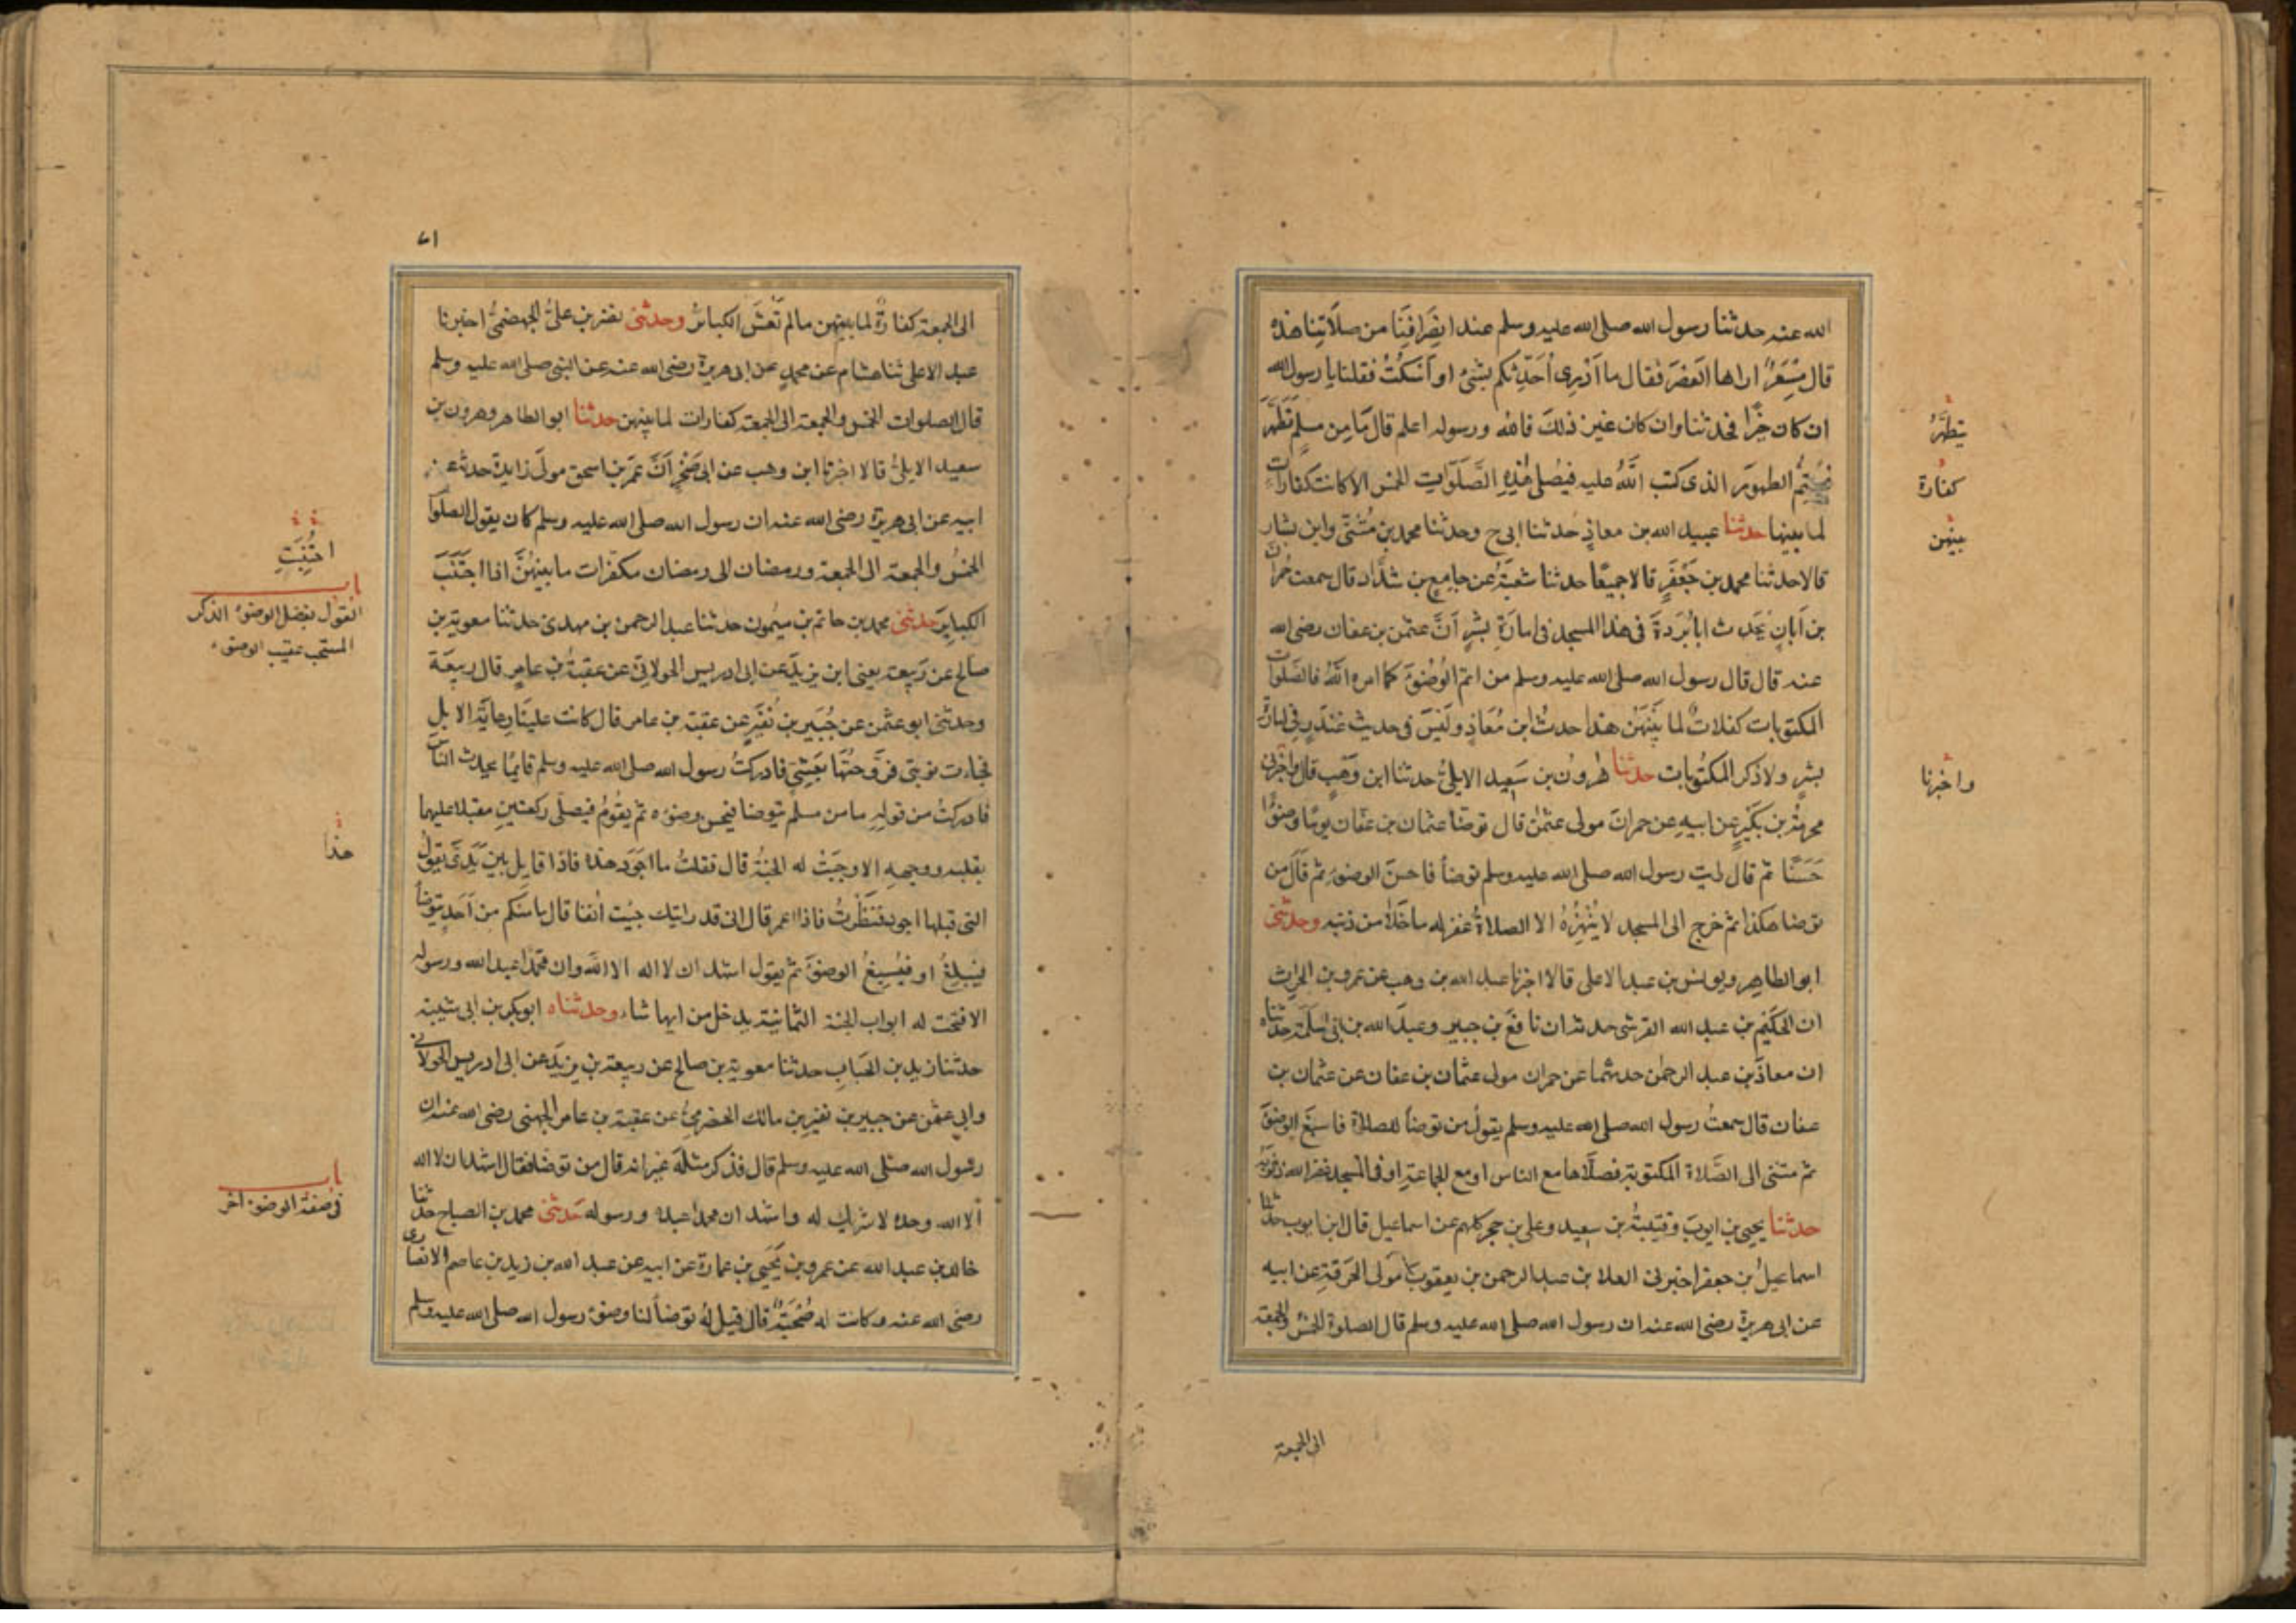 الله عنه حدثنا رسول الله صلى الله عليه وسلم عند انصرافنا من صلاتنا هذه
قال مسعر اراها العصر فقال ما ادرى أحدثكم بشئ او أسكت فقلنا يا رسول الله
ان كان خيرا فحدثنا وان كان غير ذلك فالله ورسوله اعلم قال ما من مسلم تطهر
فيتم الطهور الذى كتب الله عليه فيصلى هذه الصلوات الخمس الا كانت كفارات
لما بينها حدثنا عبيد الله بن معاذ حدثنا ابى ح وحدثنا محمد بن مثنى وابن بشار
قالا حدثنا محمد بن جعفر قالا جميعا حدثنا شعبة عن جامع بن شداد قال سمعت حمران
بن أبان يحدث ابا بردة فى هذا المسجد فى امارة بشر أن عثمن بن عفان رضى الله
عنه قال قال رسول الله صلى الله عليه وسلم من اتم الوضوء كما امره الله فالصلوات
المكتوبات كفارات لما بينهن هذا حديث ابن معاذ وليس فى حديث غندر فى امارة
بشر ولا ذكر المكتوبات حدثنا هرون بن سعيد الايلى حدثنا ابن وهب قال واخبرنى
مخرمة بن بكير عن ابيه عن حمران مولى عثمن قال توضا عثمان بن عفان يوما وضوءا
حسنا ثم قال رايت رسول الله صلى الله عليه وسلم توضأ فاحسن الوضوء ثم قال من
توضا هكذا ثم خرج الى المسجد لا ينهزه الا الصلاة غفر له ما خلا من ذنبه وحدثنى
ابو الطاهر ويونس بن عبد الاعلى قالا اخبرنا عبد الله بن وهب عن عمرو بن الحارث
ان الحكيم بن عبد الله القرشى حدثه ان نافع بن جبير وعبد الله بن ابى سلمة حدثاه
ان معاذ بن عبد الرحمن حدثهما عن حمران مولى عثمان بن عفان عن عثمان بن
عفان قال سمعت رسول الله صلى الله عليه وسلم يقول من توضأ للصلاة فاسبغ الوضوء
ثم مشى الى الصلاة المكتوبة فصلاها مع الناس او مع الجماعة او فى المسجد غفر الله ذنوبه
حدثنا يحيى بن ايوب وقتيبة بن سعيد وعلى بن حجر كلهم عن اسماعيل قال ابن ايوب حدثنا
اسماعيل بن جعفر اخبرنى العلا بن عبد الرحمن بن يعقوب مولى الحرقة عن ابيه
عن ابى هريرة رضى الله عنه ان رسول الله صلى الله عليه وسلم قال الصلوة الخمس والجمعة
الى الجمعة
يتطهر
كفارة
بينهن
واخبرنا
٧١
الى الجمعة كفارة لما بينهن ما لم تغش الكبائر وحدثنى نصر بن على الجهضمى اخبرنا
عبد الاعلى ثنا هشام عن محمد عن ابى هريرة رضى الله عنه عن النبى صلى الله عليه وسلم
قال الصلوات الخمس والجمعة الى الجمعة كفارات لما بينهن حدثنا ابو الطاهر وهرون بن
سعيد الايلى قالا اخبرنا ابن وهب عن ابى صخر أن عمر بن اسحق مولى زايدة حدثه عن
ابيه عن ابى هريرة رضى الله عنه ان رسول الله صلى الله عليه وسلم كان يقول الصلوا
الخمس والجمعة الى الجمعة ورمضان الى رمضان مكفرات ما بينهن اذا اجتنب
الكباير حدثنى محمد بن حاتم بن ميمون حدثنا عبد الرحمن بن مهدى حدثنا معوية بن
صالح عن ربيعة يعنى ابن يزيد عن ابى ادريس الخولانى عن عقبة بن عامر قال ربيعة
وحدثنى ابو عثمن عن جبير بن نفير عن عقبة بن عامر قال كانت علينا رعاية الابل
فجاءت نوبتى فروحتها بعشى فادركت رسول الله صلى الله عليه وسلم قايما يحدث الناس
فادركت من قوله ما من مسلم يتوضا فيحسن وضوءه ثم يقوم فيصلى ركعتين مقبلا عليهما
بقلبه ووجهه الا وجبت له الجنة قال فقلت ما اجود هذه فاذا قايل بين يدى يقول
التى قبلها اجود فنظرت فاذا عمر قال انى قد رايتك جيت أنفا قال ما منكم من أحد يتوضأ
فيبلغ او فيسبغ الوضوء ثم يقول اشهد ان لا اله الا الله وان محمدا عبد الله ورسوله
الا فتحت له ابواب الجنة الثمانية يدخل من ايها شاء وحدثناه ابو بكر بن ابى شيبة
حدثنا زيد بن الحباب حدثنا معوية بن صالح عن ربيعة بن يزيد عن ابى ادريس الخولانى
وابى عثمن عن جبير بن نفير بن مالك الحضرمى عن عقبة بن عامر الجهنى رضى الله عنه ان
رسول الله صلى الله عليه وسلم قال فذكر مثله غير انه قال من توضا فقال اشهد ان لا اله
الا الله وحده لا شريك له واشهد ان محمدا عبده ورسوله حدثنى محمد بن الصباح حدثنا
خالد بن عبد الله عن عمرو بن يحيى بن عمارة عن ابيه عن عبد الله بن زيد بن عاصم الانصارى
رضى الله عنه وكانت له صحبة قال قيل له توضأ لنا وضوء رسول الله صلى الله عليه وسلم
اجتنبت
باب
القول بفضل الوضوء الذكر
المستحب عقيب الوضوء
هذا
باب
فى صفة الوضوء اخر